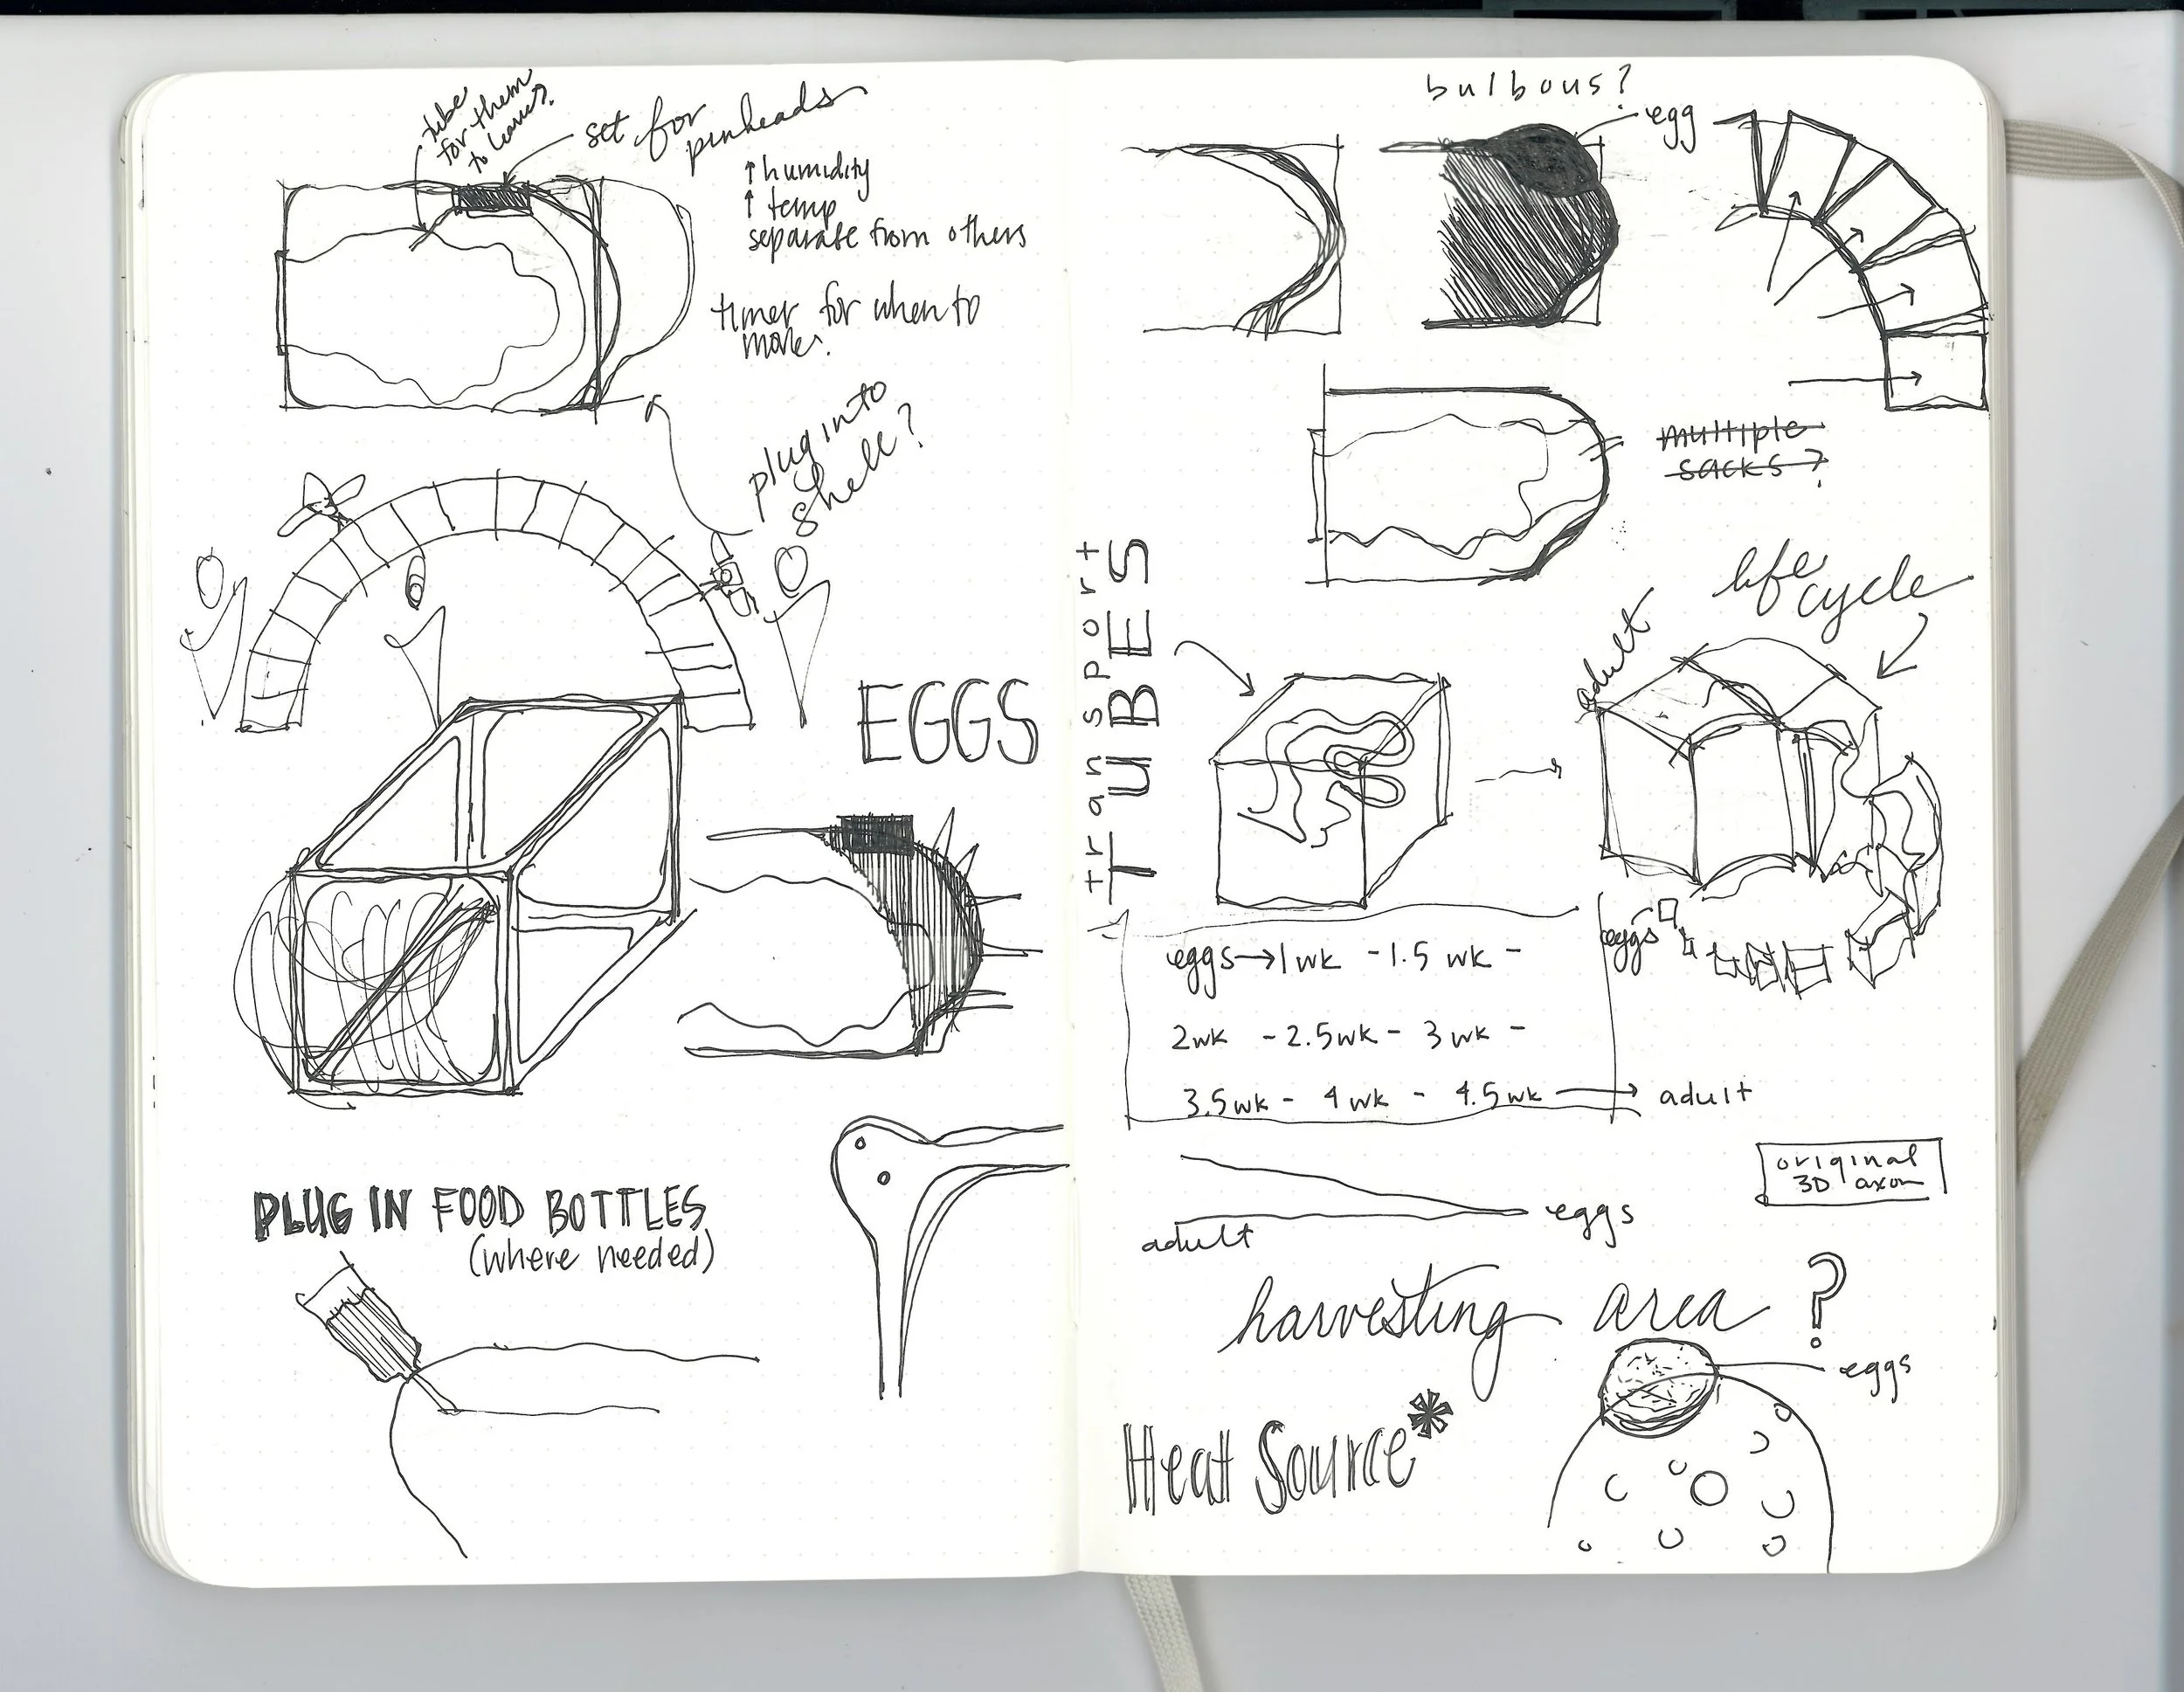 tube
for them
to leave?
set for
pinheads
↑ humidity
↑ temp
separate from others
timer for when to
move.
plug into
shell?
EGGS
PLUG IN FOOD BOTTLES
(where needed)
bulbous?
egg
multiple
sacks?
life
cycle
Transport
TUBES
adult
eggs
eggs → 1 wk - 1.5 wk -
2wk - 2.5wk - 3 wk -
3.5wk - 4 wk - 4.5wk → adult
original
3D axon
eggs
adult
harvesting area ?
eggs
Heat Source*